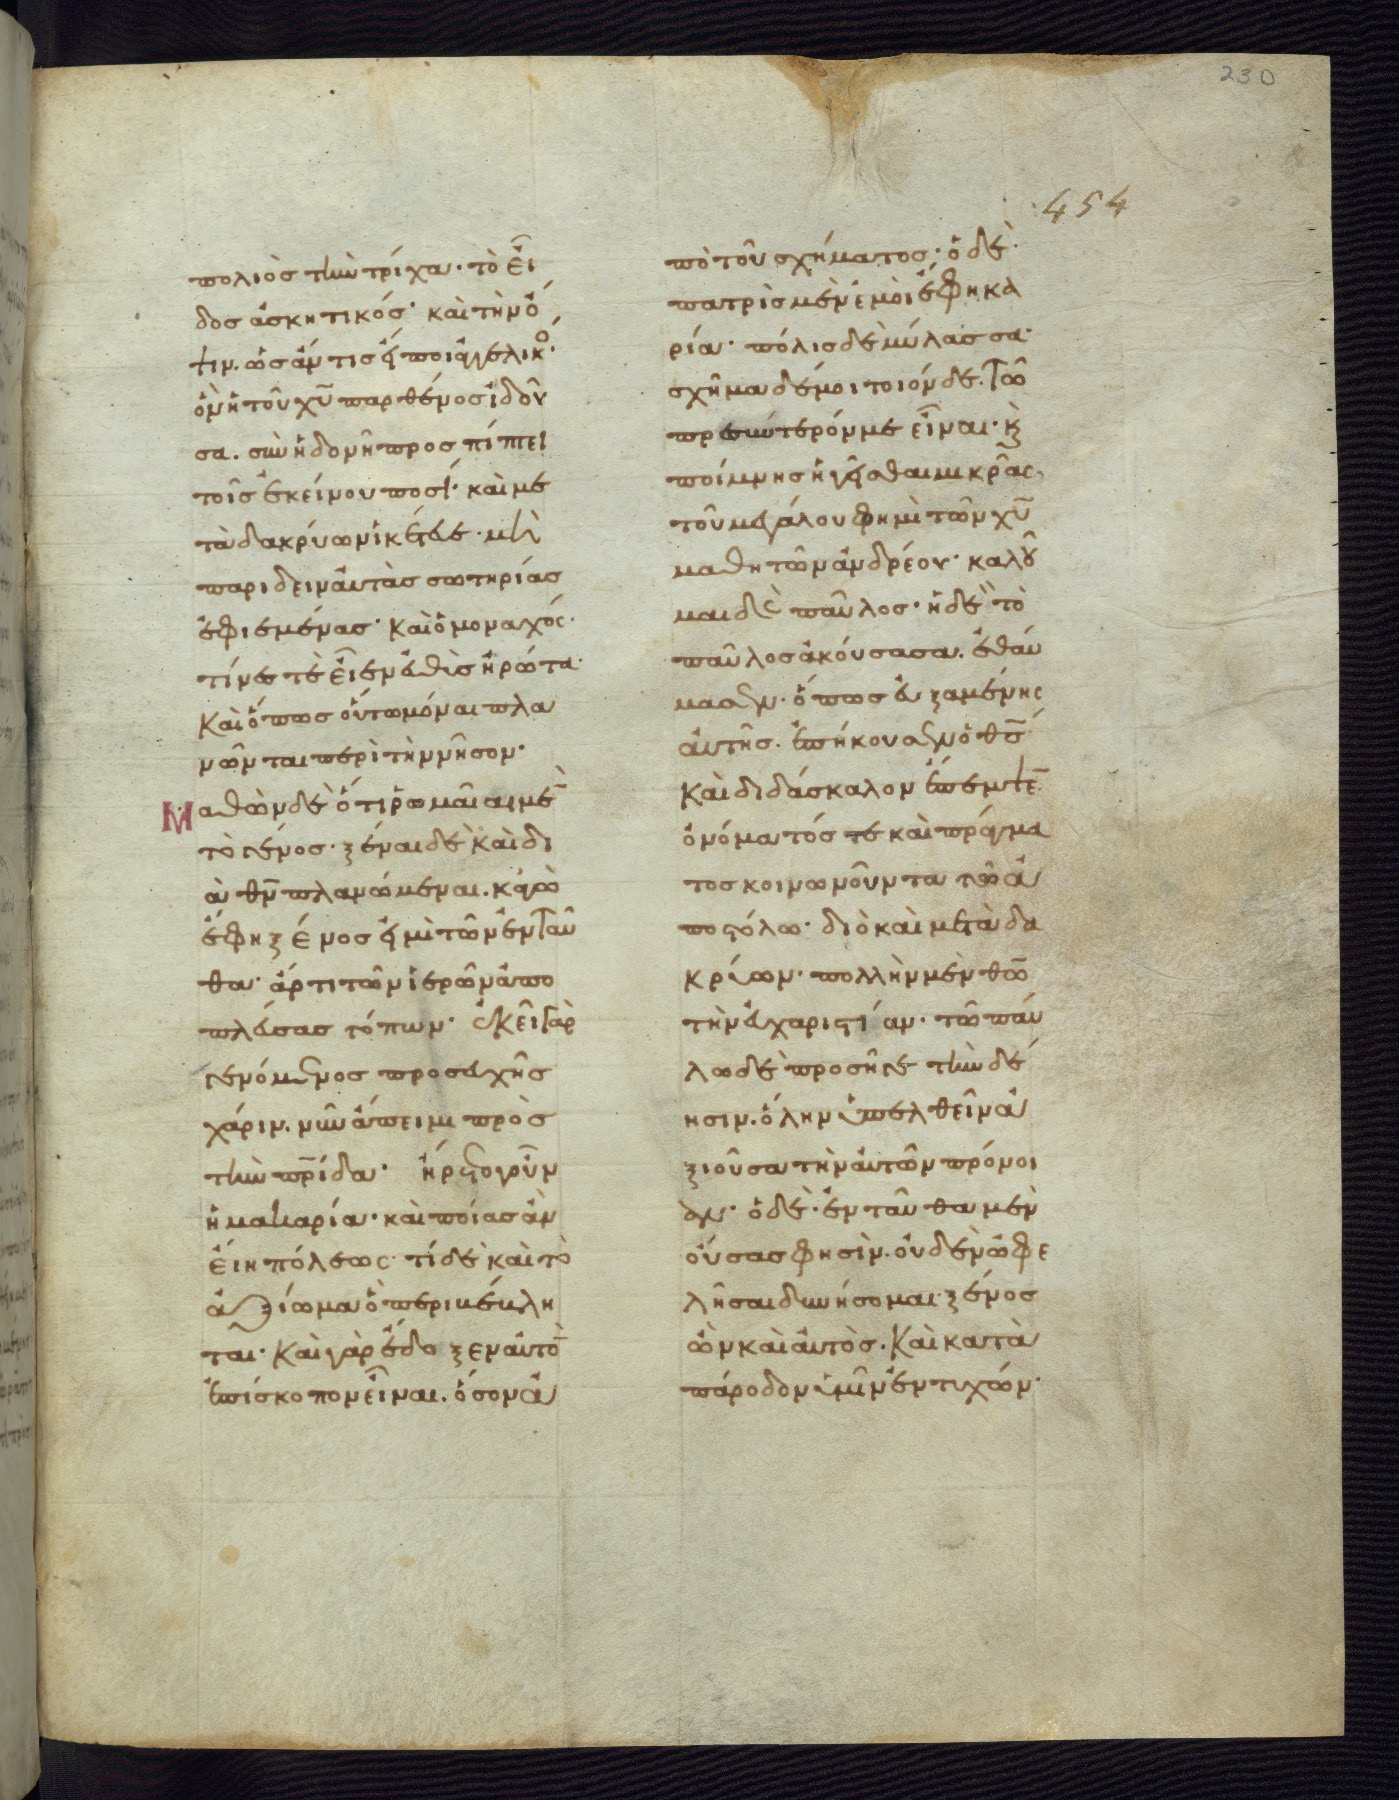 230
454
πολιὸς τὴν τρίχα· τὸ εἶ
δος ἀσκητικός· καὶ τὴν ὄ
ψιν. ὡς ἄν τις εἴποι ἀγγελικός·
ὃν ἡ τοῦ χυ̅ παρθένος ἰδοῦ
σα. σὺν ἡδονῆ προσπίπτει
τοῖς ἐκείνου ποσί· καὶ με
τὰ δακρύων ἱκέτευε· μὴ
παριδεῖν αὐτὰς σωτηρίας
ἐφιεμένας· καὶ ὁ μοναχός·
τίνες τὲ εἶεν εὐθὺς ἠρώτα·
καὶ ὅπως οὕτω μόναι πλα
νῶνται περὶ τὴν νῆσον·
Μαθὼν δὲ ὅτι ῥωμαῖαι μὲν
τὸ γένος· ξέναι δὲ καὶ δι
ὰ θν̅ πλανώμεναι. κἀγὼ
ἔφη ξένος εἰμὶ τῶν ἐνταῦ
θα· ἄρτι τῶν ἱερῶν ἀπο
πλεύσας τόπων· ἐκεῖ γὰρ
γενόμενος προσευχῆς
χάριν. νῦν ἄπειμι πρὸς
τὴν πρ̅ίδα· ἤρετο γοῦν
ἡ μακαρία· καὶ ποίας ἂν
εἴη πόλεως· τί δὲ καὶ τὸ
ἀξίωμα ὃ περικέκλη
ται· καὶ γὰρ ἔδοξεν αὐτὸν
ἐπίσκοπον εἶναι. ὅσον ἀ
πὸ τοῦ σχήματος· ὁ δέ·
πατρὶς μὲν ἐμοὶ ἔφη κα
ρία· πόλις δὲ μύλασσα·
σχῆμα δέ μοι τοιόνδε. τῶ
πρεσβύτερόν με εἶναι· κ̀
ποίμνης ἡγεῖσθαι μικρᾶς.
τοῦ μεγάλου φημὶ τῶν χυ̅
μαθητῶν ἀνδρέου· καλοῦ
μαι δὲ παῦλος· ἡ δὲ τὸ
παῦλος ἀκούσασα. ἐθαύ
μασεν· ὅπως εὐξαμένης
αὐτῆς. ἐπήκουσεν ὁ θς̅
καὶ διδάσκαλον ἔπεμψεν
ὀνόματός τε καὶ πράγμα
τος κοινωνοῦντα τῶ ἀ
ποστόλω· διὸ καὶ μετὰ δα
κρύων· πολλὴν μὲν θω̅
τὴν εὐχαριστίαν· τῶ παύ
λω δὲ προσῆγε τὴν δέ
ησιν. ὅλην ὑπελθεῖν ἀ
ξιοῦσα τὴν αὐτῶν πρόνοι
αν· ὁ δέ· ἐνταῦθα μὲν
οὔσας φησίν. οὐδὲν ὠφε
λῆσαι δυνήσομαι· ξένος
ὢν καὶ αὐτός. καὶ κατὰ
πάροδον ὑμῖν ἐντυχών·